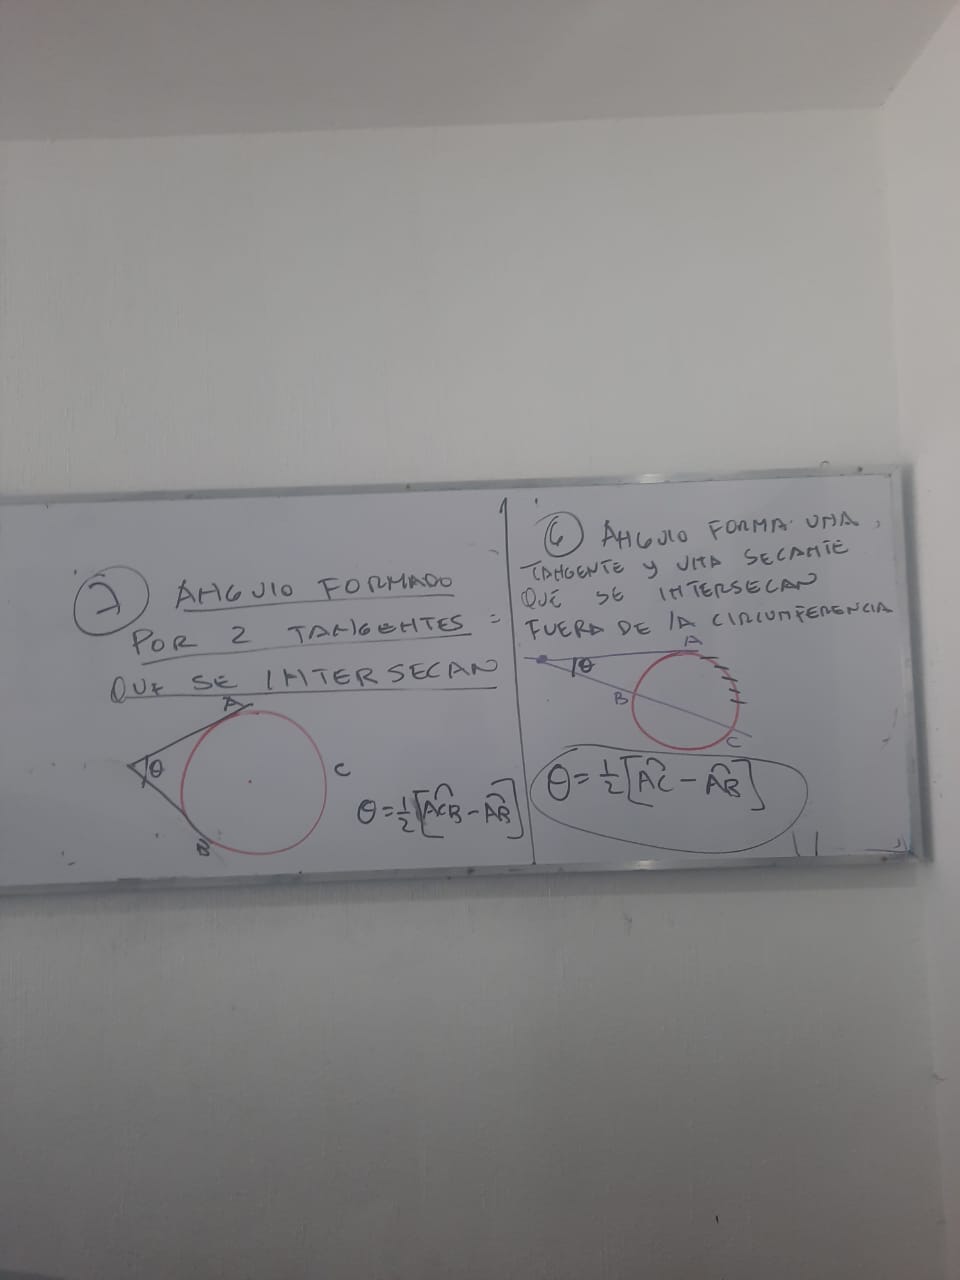 7 ANGULO FORMADO
POR 2 TANGENTES =
QUE SE INTERSECAN
A
θ
C
B
θ = 1/2 [ACB - AB]
6 ANGULO FORMA UNA
TANGENTE Y UNA SECANTE
QUE SE INTERSECAN
FUERA DE LA CIRCUNFERENCIA
A
θ
B
C
θ = 1/2 [AC - AB]